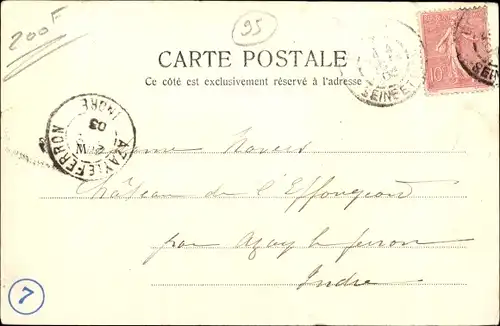 200F
95
CARTE POSTALE
Ce côté est exclusivement réservé à l'adresse
10
SEINE ET
SEINE
AZAY LE FERRON
INDRE
03
Château de l'Effougeard
par Azay le ferron
Indre
7